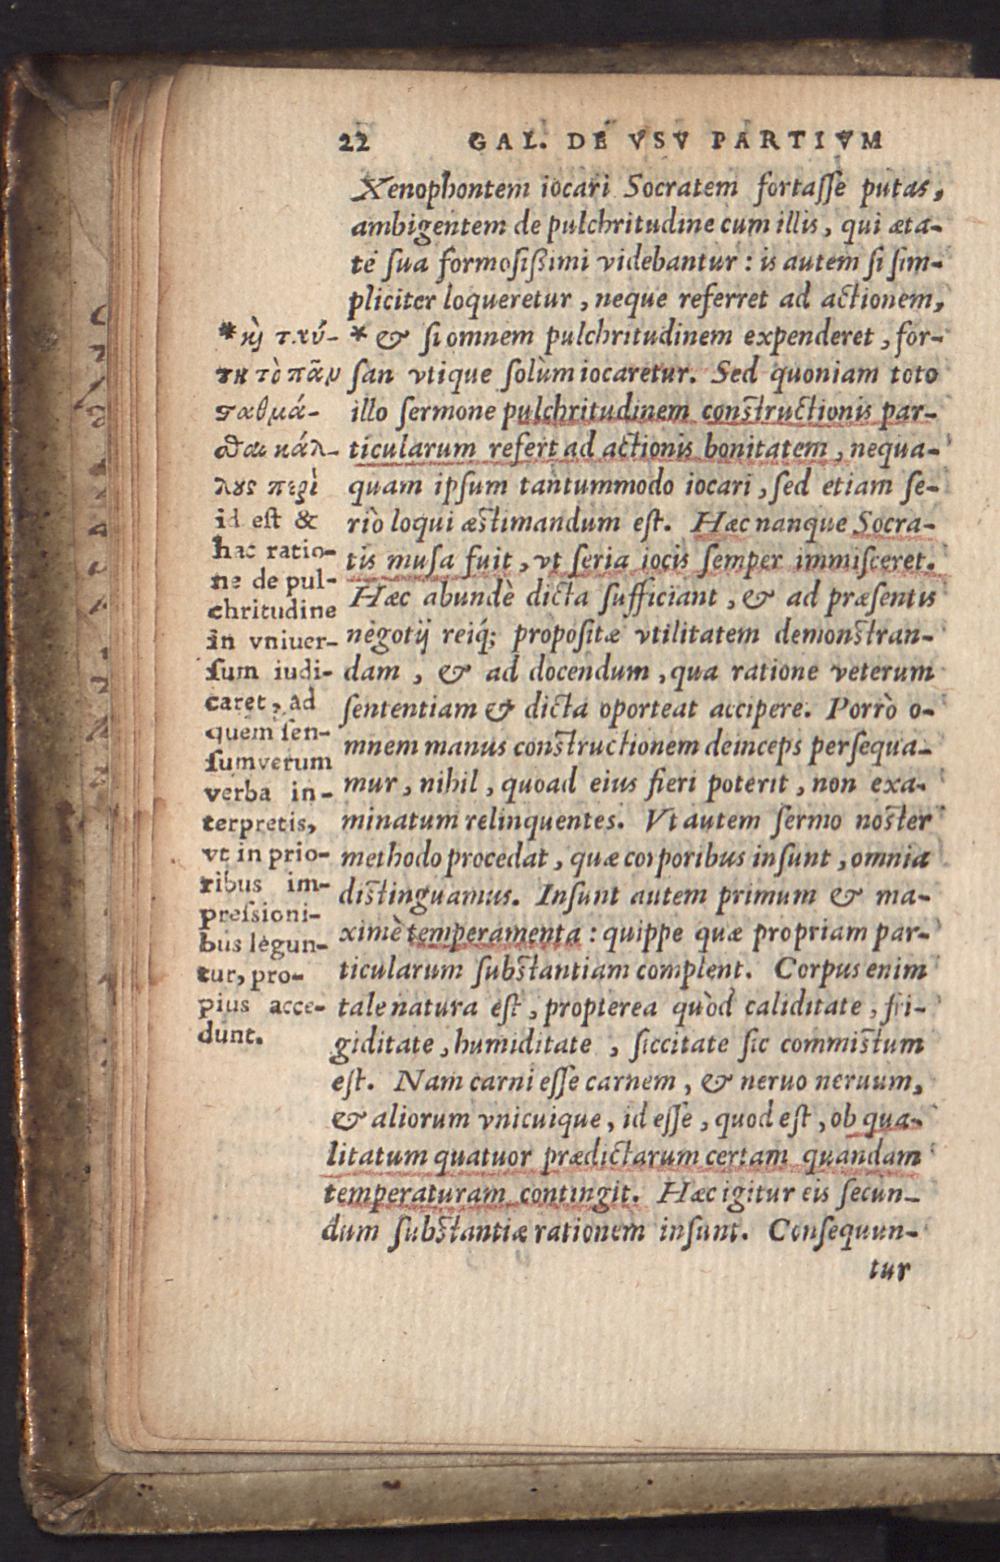 22 GAL. DE VSV PARTIVM
Xenophontem iocari Socratem fortaſſe putas,
ambigentem de pulchritudine cum illis, qui æta-
te ſua formoſiſſimi videbantur: is autem ſi ſim-
pliciter loqueretur, neque referret ad actionem,
* & ſi omnem pulchritudinem expenderet, for-
ſan vtique ſolùm iocaretur. Sed quoniam toto
illo ſermone pulchritudinem conſtructionis par-
ticularum refert ad actionis bonitatem, nequa-
quam ipſum tantummodo iocari, ſed etiam ſe-
riò loqui æſtimandum eſt. Hæc nanque Socra-
tis muſa fuit, vt ſeria iocis ſemper immiſceret.
Hæc abundè dicta ſufficiant, & ad præſentis
negotij reiq́; propoſitæ vtilitatem demonſtran-
dam, & ad docendum, qua ratione veterum
ſententiam & dicta oporteat accipere. Porrò o-
mnem manus conſtructionem deinceps perſequa-
mur, nihil, quoad eius fieri poterit, non exa-
minatum relinquentes. Vt autem ſermo noſter
methodo procedat, quæ corporibus inſunt, omnia
diſtinguamus. Inſunt autem primum & ma-
ximè temperamenta: quippe quæ propriam par-
ticularum ſubſtantiam complent. Corpus enim
tale natura eſt, propterea quòd caliditate, fri-
giditate, humiditate, ſiccitate ſic commiſtum
eſt. Nam carni eſſe carnem, & neruo neruum,
& aliorum vnicuique, id eſſe, quod eſt, ob qua-
litatum quatuor prædictarum certam quandam
temperaturam contingit. Hæc igitur eis ſecun-
dum ſubſtantiæ rationem inſunt. Conſequun-
tur
*κὶ τ.τύ-
τη τὸ πᾶν
σαθμά-
σθαι κάλ-
λος περὶ
id eſt &
hac ratio-
ne de pul-
chritudine
in vniuer-
ſum iudi-
caret, ad
quem ſen-
ſum verum
verba in-
terpretis,
vt in prio-
ribus im-
preſsioni-
bus legun-
tur, pro-
pius acce-
dunt.